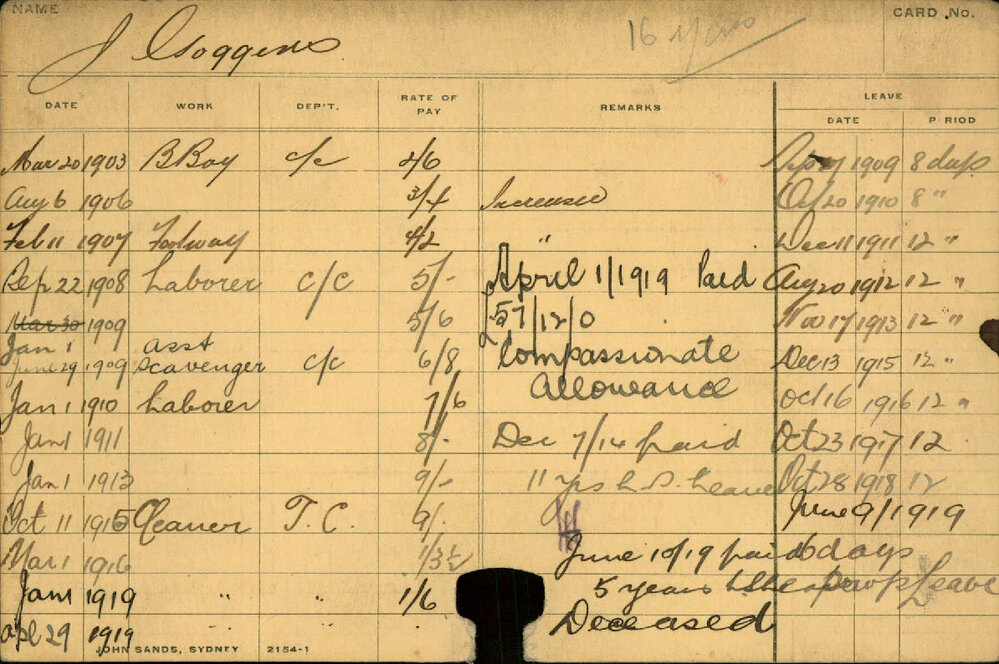 NAME J Goggins 16 years CARD No.
LEAVE
DATE WORK DEP'T. RATE OF PAY REMARKS DATE PERIOD
Mar 20 1903 B Boy c/c 2/6 1909 8 days
Aug 6 1906 3/4 Increased Oct 20 1910 8 "
Feb 11 1907 Footway 4/2 " Dec 11 1911 12 "
Sep 22 1908 Laborer c/c 5/- April 1/1919 Paid Aug 20 1912 12 "
Mar 30 1909 5/6 £57/12/0 Nov 17 1913 12 "
Jan 1
June 29 1909 Asst Scavenger c/c 6/8 Compassionate Dec 13 1915 12 "
Jan 1 1910 Laborer 7/6 Allowance Oct 16 1916 12 "
Jan 1 1911 8/- Dec 7/14 paid Oct 23 1917 12
Jan 1 1913 9/- 11 yrs L.S. Leave Oct 28 1918 12
Oct 11 1915 Cleaner T.C. 9/- June 9/1919
Mar 1 1916 1/3½ June 10/19 paid days
Jan 1 1919 " " 1/6 5 years Leave
Apl 29 1919 Deceased
JOHN SANDS, SYDNEY 2154-1